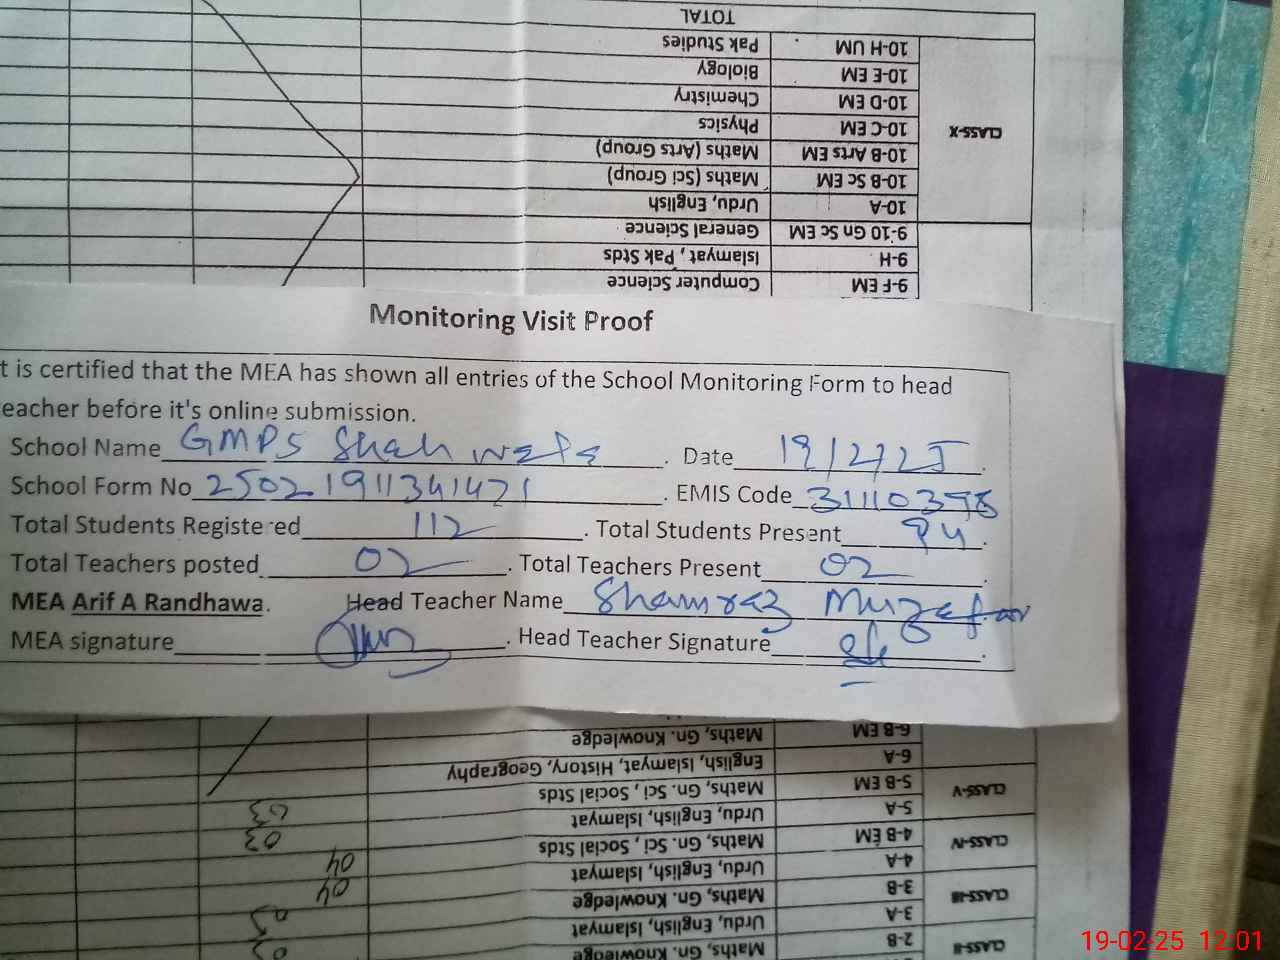 TOTAL
10-H UM Pak Studies
10-E EM Biology
10-D EM Chemistry
10-C EM Physics
CLASS-X
10-B Arts EM Maths (Arts Group)
10-B Sc EM Maths (Sci Group)
10-A Urdu, English
9-10 Gn Sc EM General Science
9-H Islamyat, Pak Stds
9-F EM Computer Science
Monitoring Visit Proof
t is certified that the MEA has shown all entries of the School Monitoring Form to head
eacher before it's online submission.
School Name GMPS Shah. Date 19/2/25.
School Form No 25021911341421. EMIS Code 31110398
Total Students Registered 112. Total Students Present 94.
Total Teachers posted 02. Total Teachers Present 02.
MEA Arif A Randhawa. Head Teacher Name Shamraz Muzafar
MEA signature. Head Teacher Signature.
6-B EM Maths, Gn. Knowledge
6-A English, Islamyat, History, Geography
CLASS-V
5-B EM Maths, Gn. Sci, Social Stds
5-A Urdu, English, Islamyat 03
CLASS-IV
4-B EM Maths, Gn. Sci, Social Stds 03
4-A Urdu, English, Islamyat 04
CLASS-III
3-B Maths, Gn. Knowledge 04
3-A Urdu, English, Islamyat
CLASS-II
2-B Maths, Gn. Knowledge
19-02-25 12:01